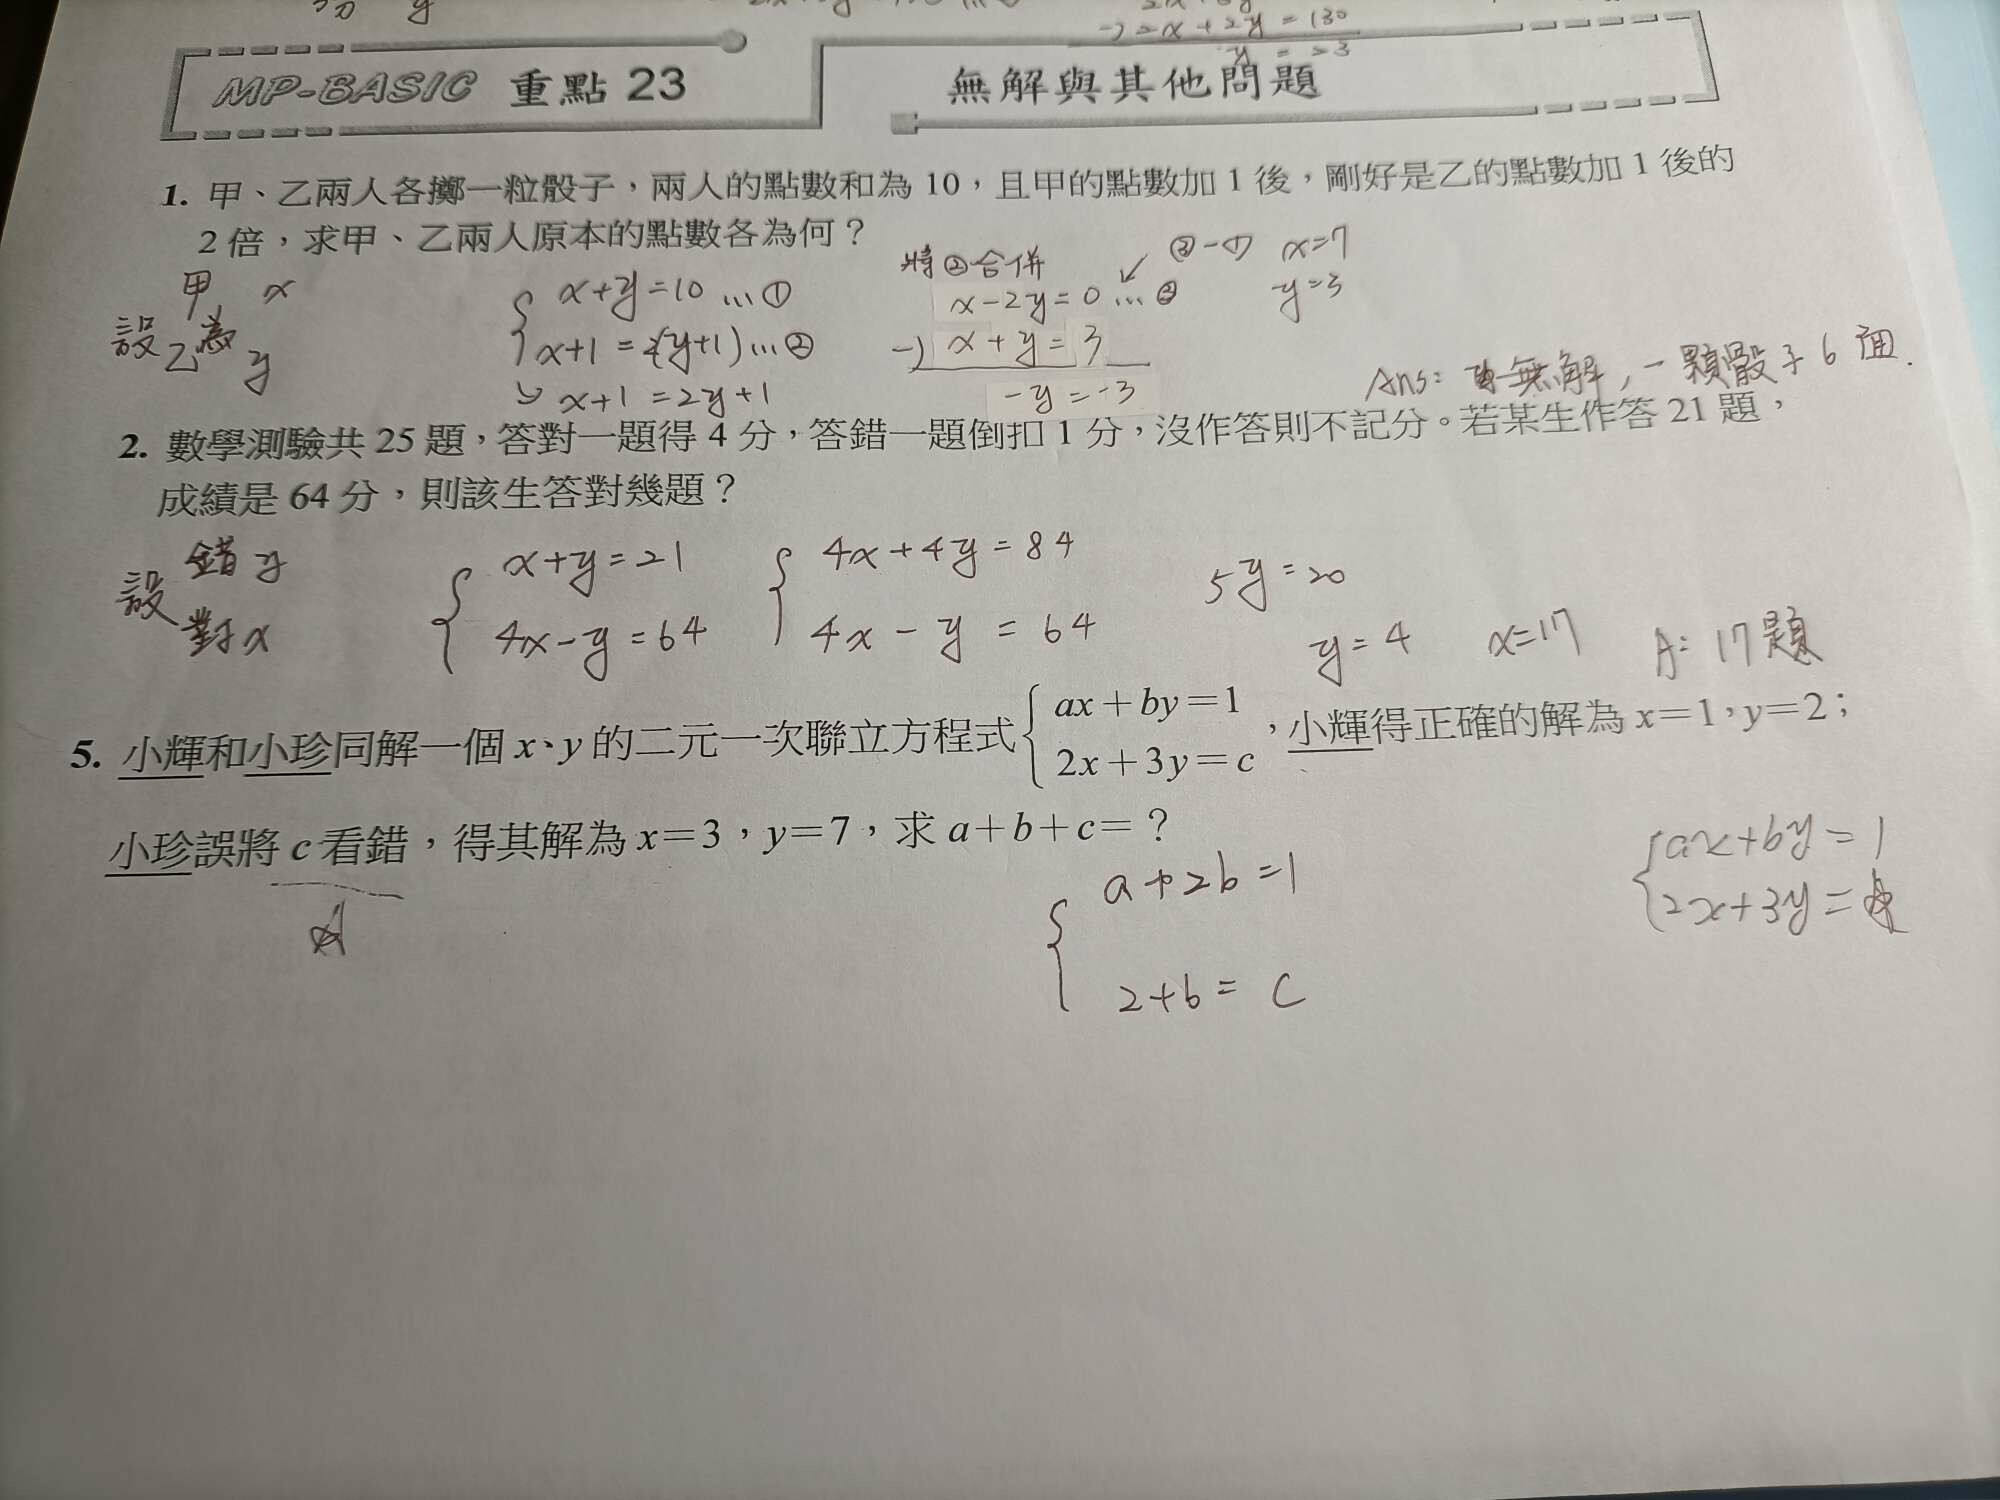 -) 2x + 2y = 130
y = 23
MP-BASIC 重點 23
無解與其他問題
1. 甲、乙兩人各擲一粒骰子，兩人的點數和為 10，且甲的點數加 1 後，剛好是乙的點數加 1 後的
2 倍，求甲、乙兩人原本的點數各為何？
設 甲 x
乙為 y
x+y=10 ...①
x+1 = 2(y+1) ...②
x+1 = 2y+1
將②合併
x-2y=0 ...③
-) x+y=3
-y=-3
③-① x=7
y=3
Ans: 無解，一顆骰子6面.
2. 數學測驗共 25 題，答對一題得 4 分，答錯一題倒扣 1 分，沒作答則不記分。若某生作答 21 題，
成績是 64 分，則該生答對幾題？
設 錯 y
對 x
x+y=21
4x-y=64
4x+4y=84
4x-y=64
5y=20
y=4 x=17 A: 17題
5. 小輝和小珍同解一個 x、y 的二元一次聯立方程式 { ax+by=1
2x+3y=c ，小輝得正確的解為 x=1，y=2；
小珍誤將 c 看錯，得其解為 x=3，y=7，求 a+b+c=？
a+2b=1
2+6=c
ax+by=1
2x+3y=☆
☆